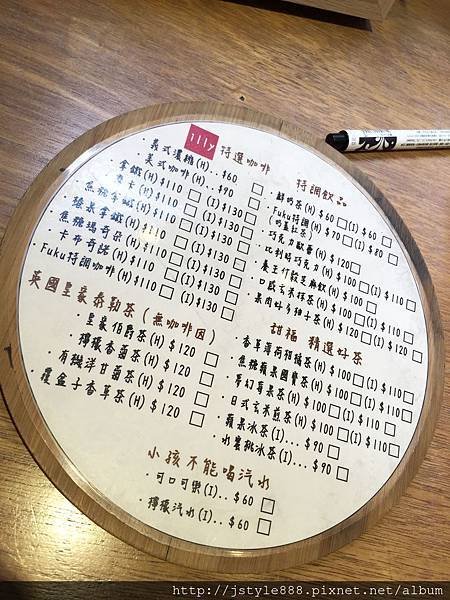 illy 特選咖啡
・義式濃縮(H).. $60
・美式咖啡(H).. $90
・拿鐵(H)$110 (I)$130
・摩卡(H)$110 (I)$130
・焦糖拿鐵(H)$110 (I)$130
・榛果拿鐵(H)$110 (I)$130
・焦糖瑪奇朵(H)$110 (I)$130
・卡布奇諾(H)$110 (I)$130
・Fuku特調咖啡(H)$110 (I)$130
英國皇家泰勒茶(無咖啡因)
・皇家伯爵茶(H) $120
・檸檬香茴茶(H) $120
・有機洋甘菊茶(H) $120
・覆盆子香草茶(H) $120
特調飲品
・鮮奶茶(H) $60 (I) $60
・Fuku特調(H) $70 (I) $80
(奶蓋紅茶)
・巧克力歐蕾(H) $120
・比利時巧克力(H) $100 (I) $110
・養生竹炭芝麻飲(H) $100
・口感玄米抹茶(H) $100 (I) $110
・果肉好多柚子茶(H) $120 (I) $120
甜福 精選好茶
・香草薄荷柑橘茶(H) $100 (I) $110
・焦糖蘋果國寶茶(H) $100 (I) $110
・夢幻莓果茶(H) $100 (I) $110
・日式玄米煎茶(H) $100 (I) $110
・蘋果冰茶(I)... $90
・水蜜桃冰茶(I)... $90
小孩不能喝汽水
・可口可樂(I).. $60
・檸檬汽水(I).. $60
http://jstyle888.pixnet.net/album